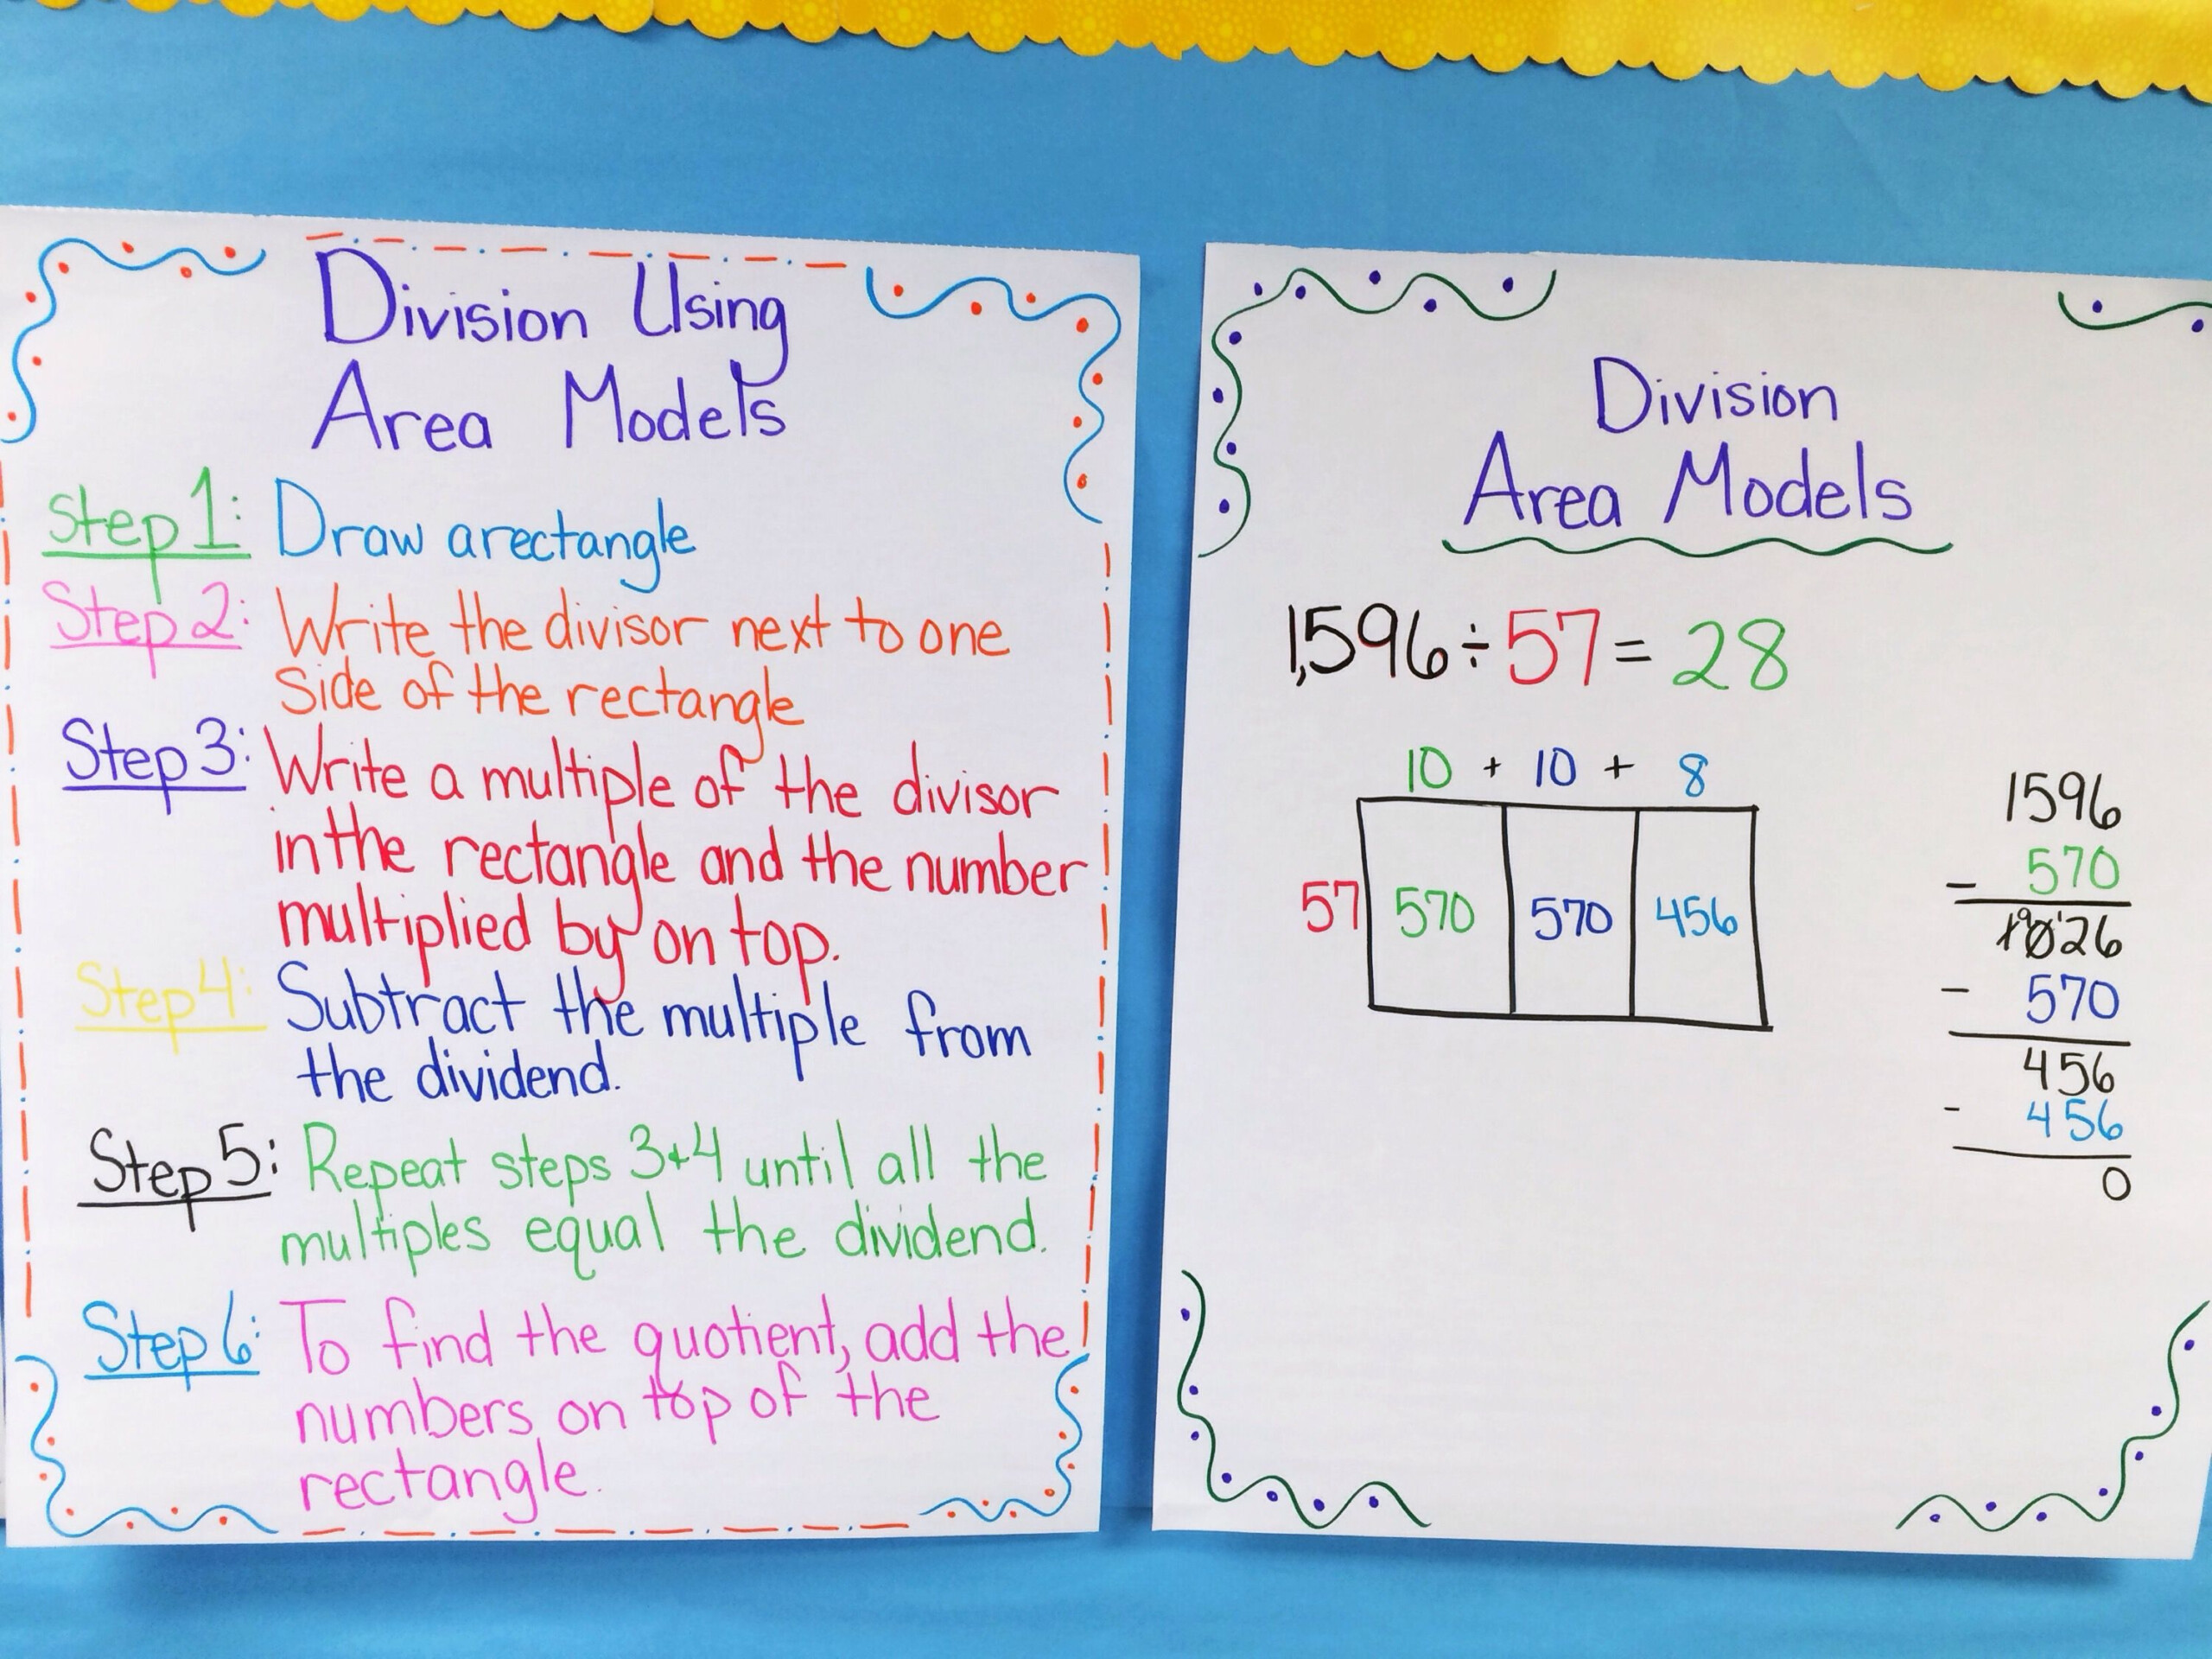 Division Using
Area Models
Step 1: Draw a rectangle
Step 2: Write the divisor next to one
side of the rectangle
Step 3: Write a multiple of the divisor
in the rectangle and the number
multiplied by on top.
Step 4: Subtract the multiple from
the dividend.
Step 5: Repeat steps 3+4 until all the
multiples equal the dividend.
Step 6: To find the quotient, add the
numbers on top of the
rectangle.
Division
Area Models
1,596 ÷ 57 = 28
10 + 10 + 8
57 570 570 456
1596
- 570
1026
- 570
456
- 456
0